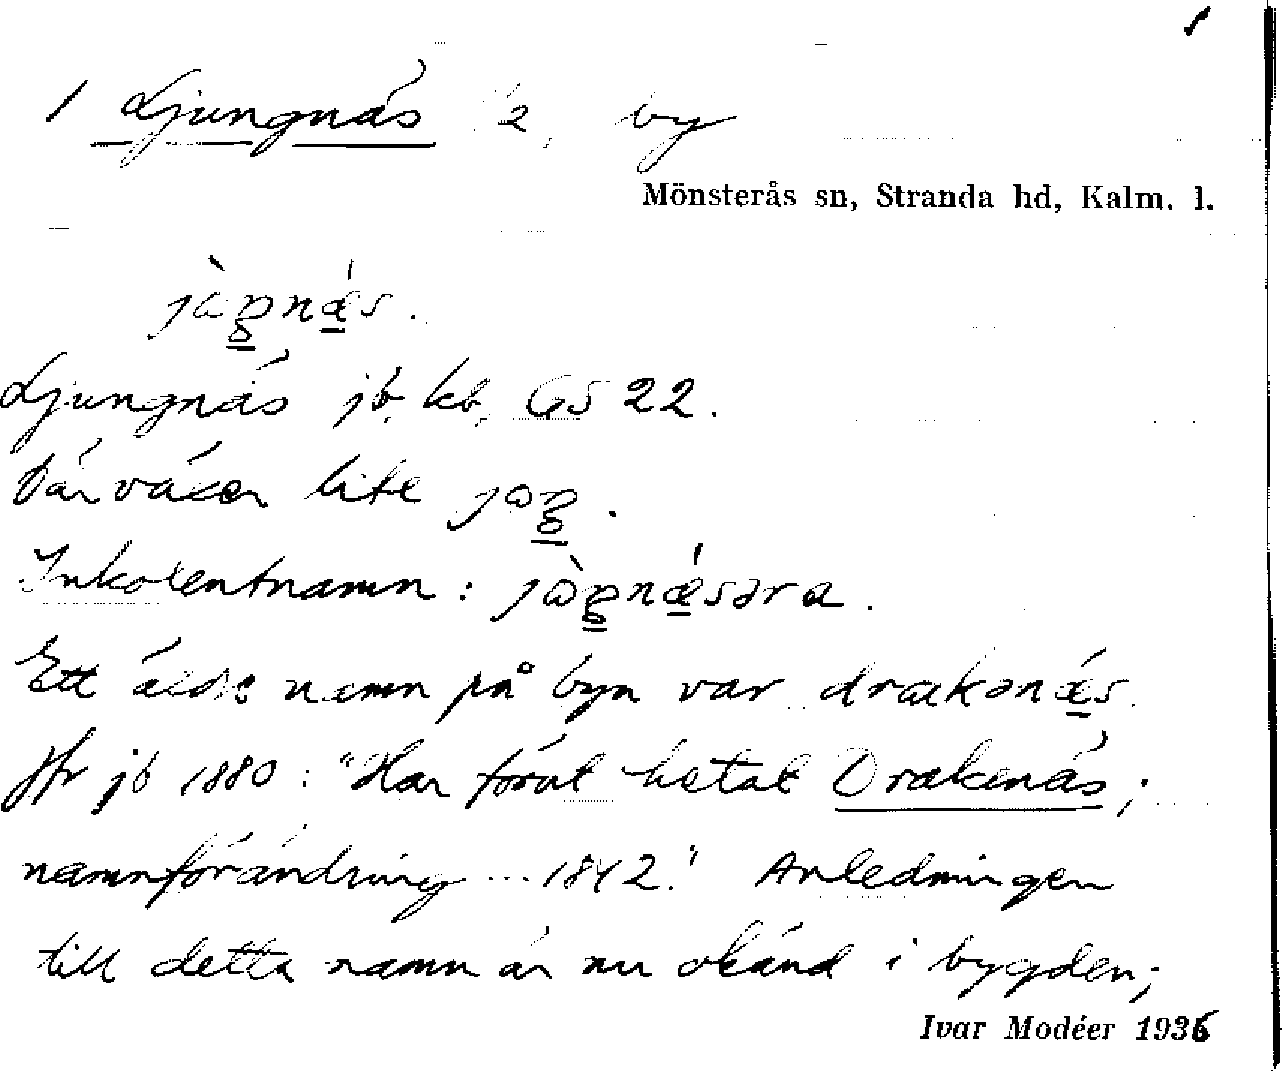 1 Ljungnäs 1/2, by
Mönsterås sn, Stranda hd, Kalm. l.
Ljungnäs jb, kb, GS 22.
Där växer lite
Inkolentnamn:
Ett äldre namn på byn var drakənæs.
Jfr jb 1880: "Har förut hetat Drakenäs;
namnförändring ... 1842." Anledningen
till detta namn är nu okänd i bygden;
Ivar Modéer 1936